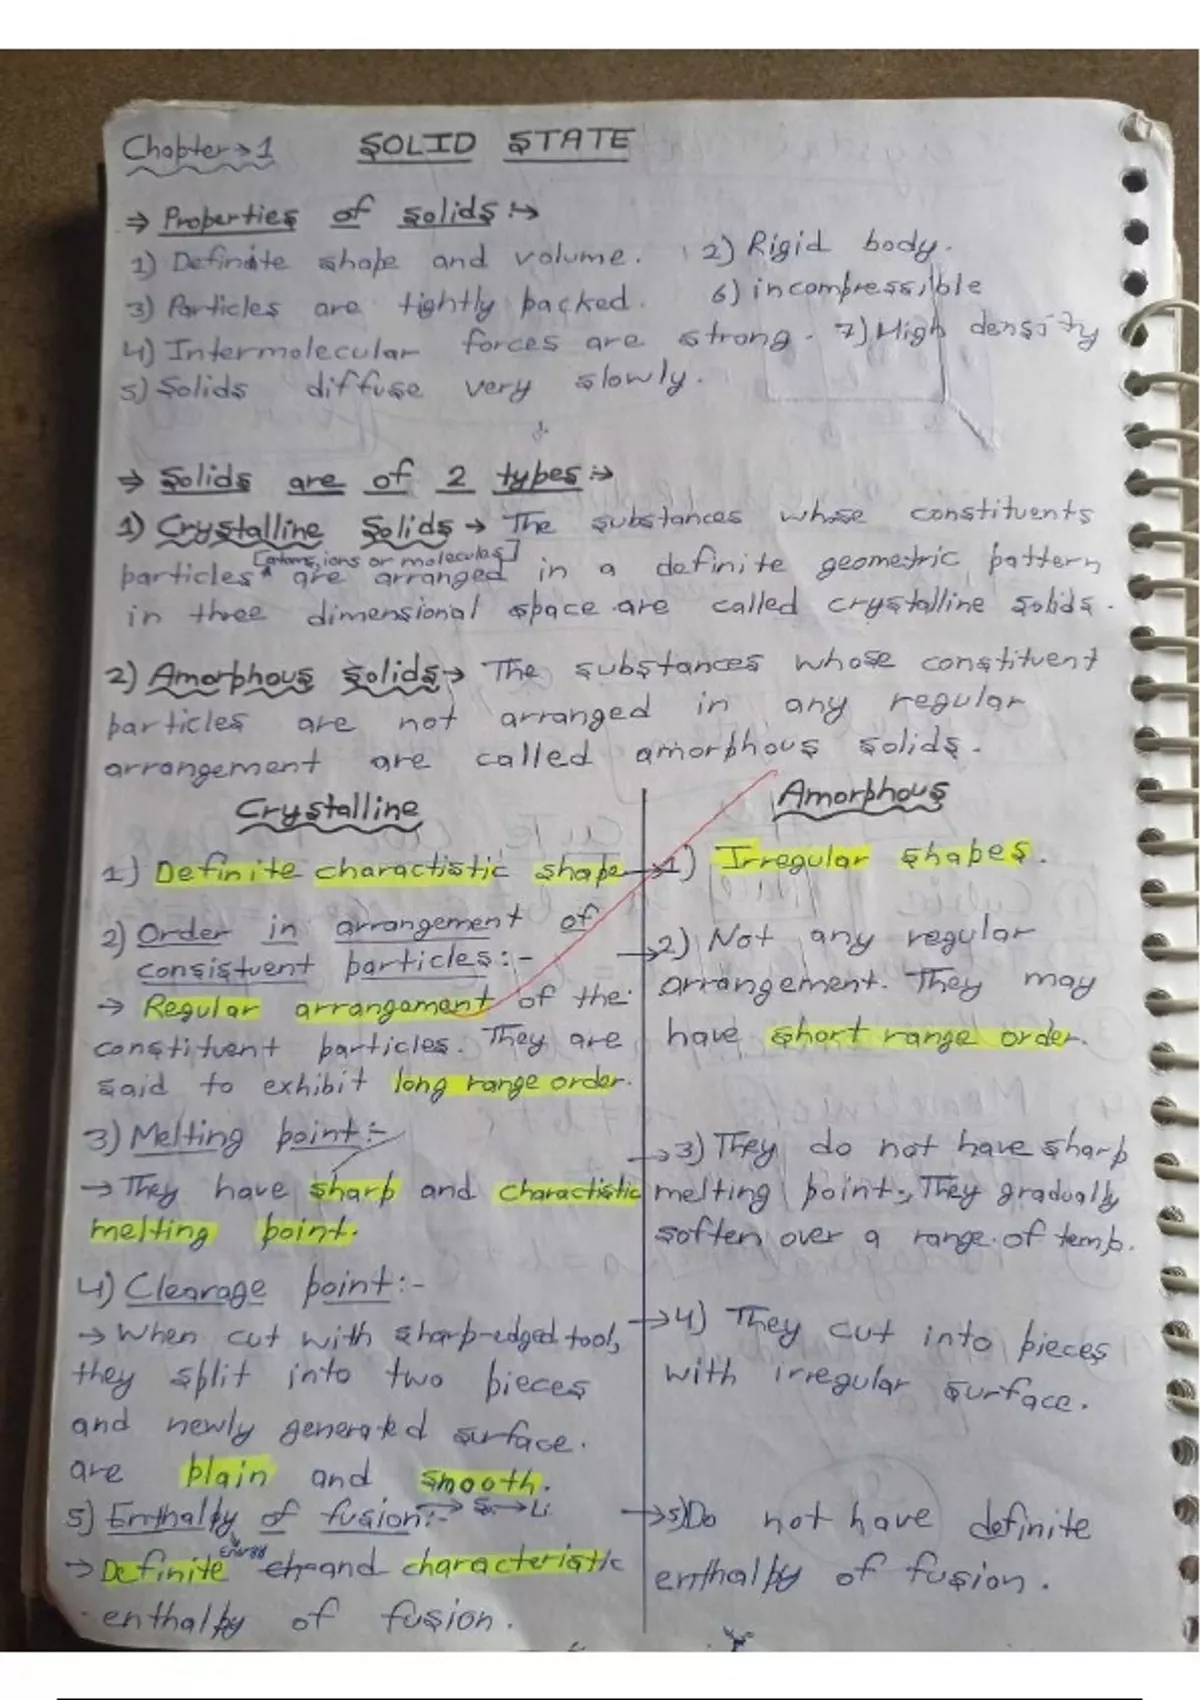 Chapter → 1 SOLID STATE
⇒ Properties of solids :→
1) Definite shape and volume. 2) Rigid body.
3) Particles are tightly packed. 6) incompressible
4) Intermolecular forces are strong. 7) High density
5) Solids diffuse very slowly.
⇒ Solids are of 2 types :→
1) Crystalline Solids → The substances whose constituents
[atoms, ions or molecules]
particles are arranged in a definite geometric pattern
in three dimensional space are called crystalline solids.
2) Amorphous solids → The substances whose constituent
particles are not arranged in any regular
arrangement are called amorphous solids.
Crystalline
1) Definite charactistic shape
2) Order in arrangement of
consistuent particles :-
→ Regular arrangement of the
constituent particles. They are
said to exhibit long range order.
3) Melting point :-
→ They have sharp and charactistic
melting point.
4) Clearage point :-
→ When cut with sharp-edged tool,
they split into two pieces
and newly generated surface.
are plain and smooth.
5) Enthalpy of fusion :- → S → Li
energy
→ Definite and characteristic
enthalpy of fusion.
Amorphous
→ 1) Irregular shapes.
→ 2) Not any regular
arrangement. They may
have short range order.
→ 3) They do not have sharp
melting point, They gradually
soften over a range of temp.
→ 4) They cut into pieces
with irregular surface.
→ 5) Do not have definite
enthalpy of fusion.